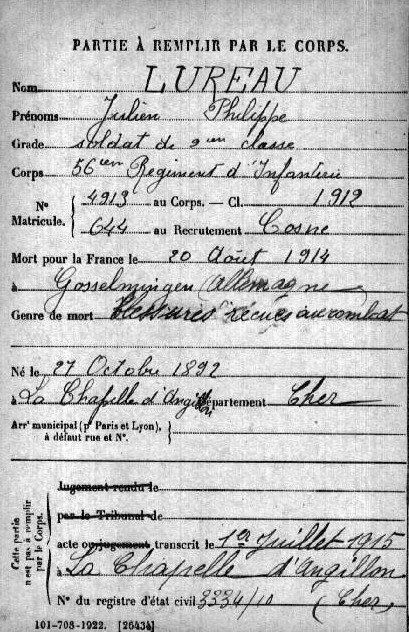 PARTIE À REMPLIR PAR LE CORPS.
Nom LUREAU
Prénoms Julien Philippe
Grade soldat de 2eme classe
Corps 56eme Regiment d'Infanterie
N° Matricule. { 4913 au Corps. — Cl. 1912
644 au Recrutement Cosne
Mort pour la France le 20 Août 1914
à Gosselmingen (Allemagne
Genre de mort Blessures reçues au combat
Né le 27 Octobre 1892
à La Chapelle d'Angillon Département Cher
Arrt municipal (pr Paris et Lyon), à défaut rue et N°. }
Cette partie n'est pas à remplir par le Corps.
Jugement rendu le
par le Tribunal de
acte ou jugement transcrit le 1er Juillet 1915
à La Chapelle d'Angillon
N° du registre d'état civil 3334/10 (Cher)
101-708-1922. [26434]